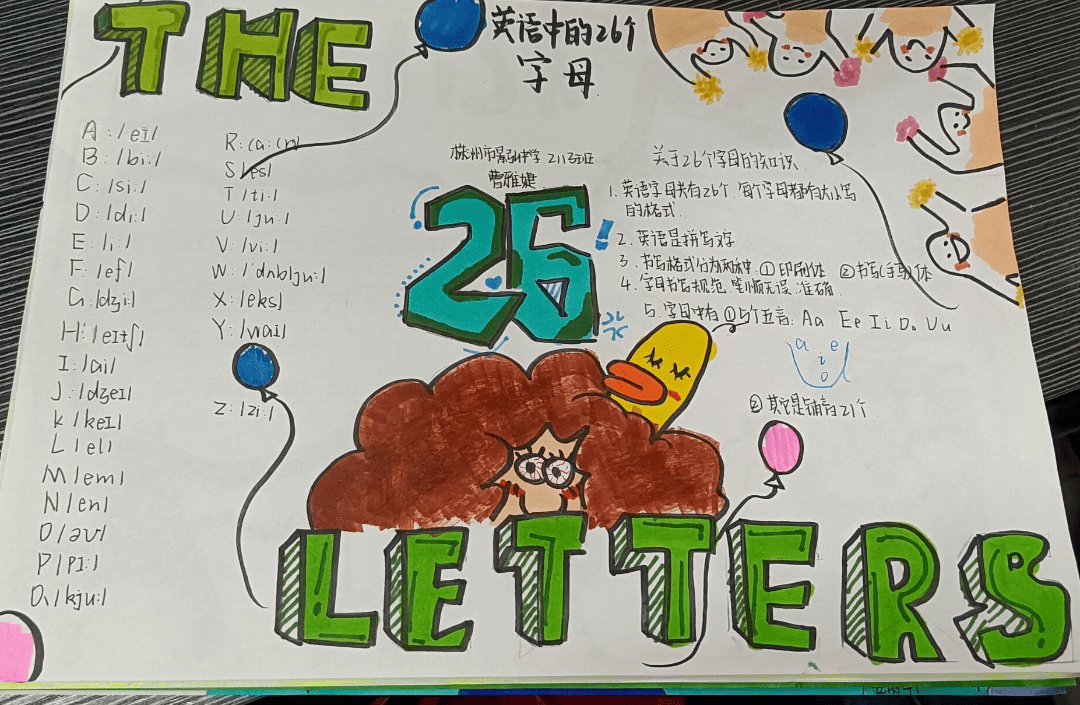 THE
英语中的26个
字母
A:/eɪ/
B:/bi:/
C:/si:/
D:/di:/
E:/i:/
F:/ef/
G:/dʒi:/
H:/eɪtʃ/
I:/ai/
J:/dʒeɪ/
K/keɪ/
L/el/
M/em/
N/en/
O/əu/
P/pɪ:/
Q/kju:/
R:(a:(r)
S/es/
T/ti:/
U:/ju:/
V:/vi:/
W:/ˈdʌblju:/
X:/eks/
Y:/wai/
Z:/zi:/
株州市景弘中学 2113班
曹雅婕
26
关于26个字母的知识
1.英语字母共有26个.每个字母都有大小写
的格式.
2.英语是拼写文字
3.书写格式分为两种.①印刷体 ②书写(手写)体
4.字母书写规范,笔顺无误.准确.
5.字母中有①5个元音:Aa Ee Ii Oo Uu
a e
i
o
②其它是辅音21个.
LETTERS